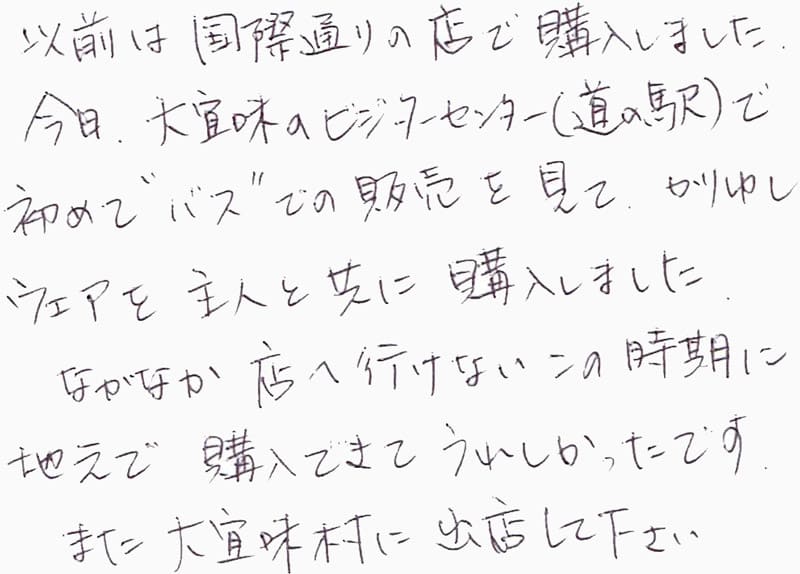 以前は国際通りの店で購入しました.
今日.大宜味のビジターセンター(道の駅)で
初めて"バス"での販売を見て.かりゆし
ウェアを主人と共に購入しました.
なかなか店へ行けないこの時期に
地元で購入できてうれしかったです.
また大宜味村に出店して下さい